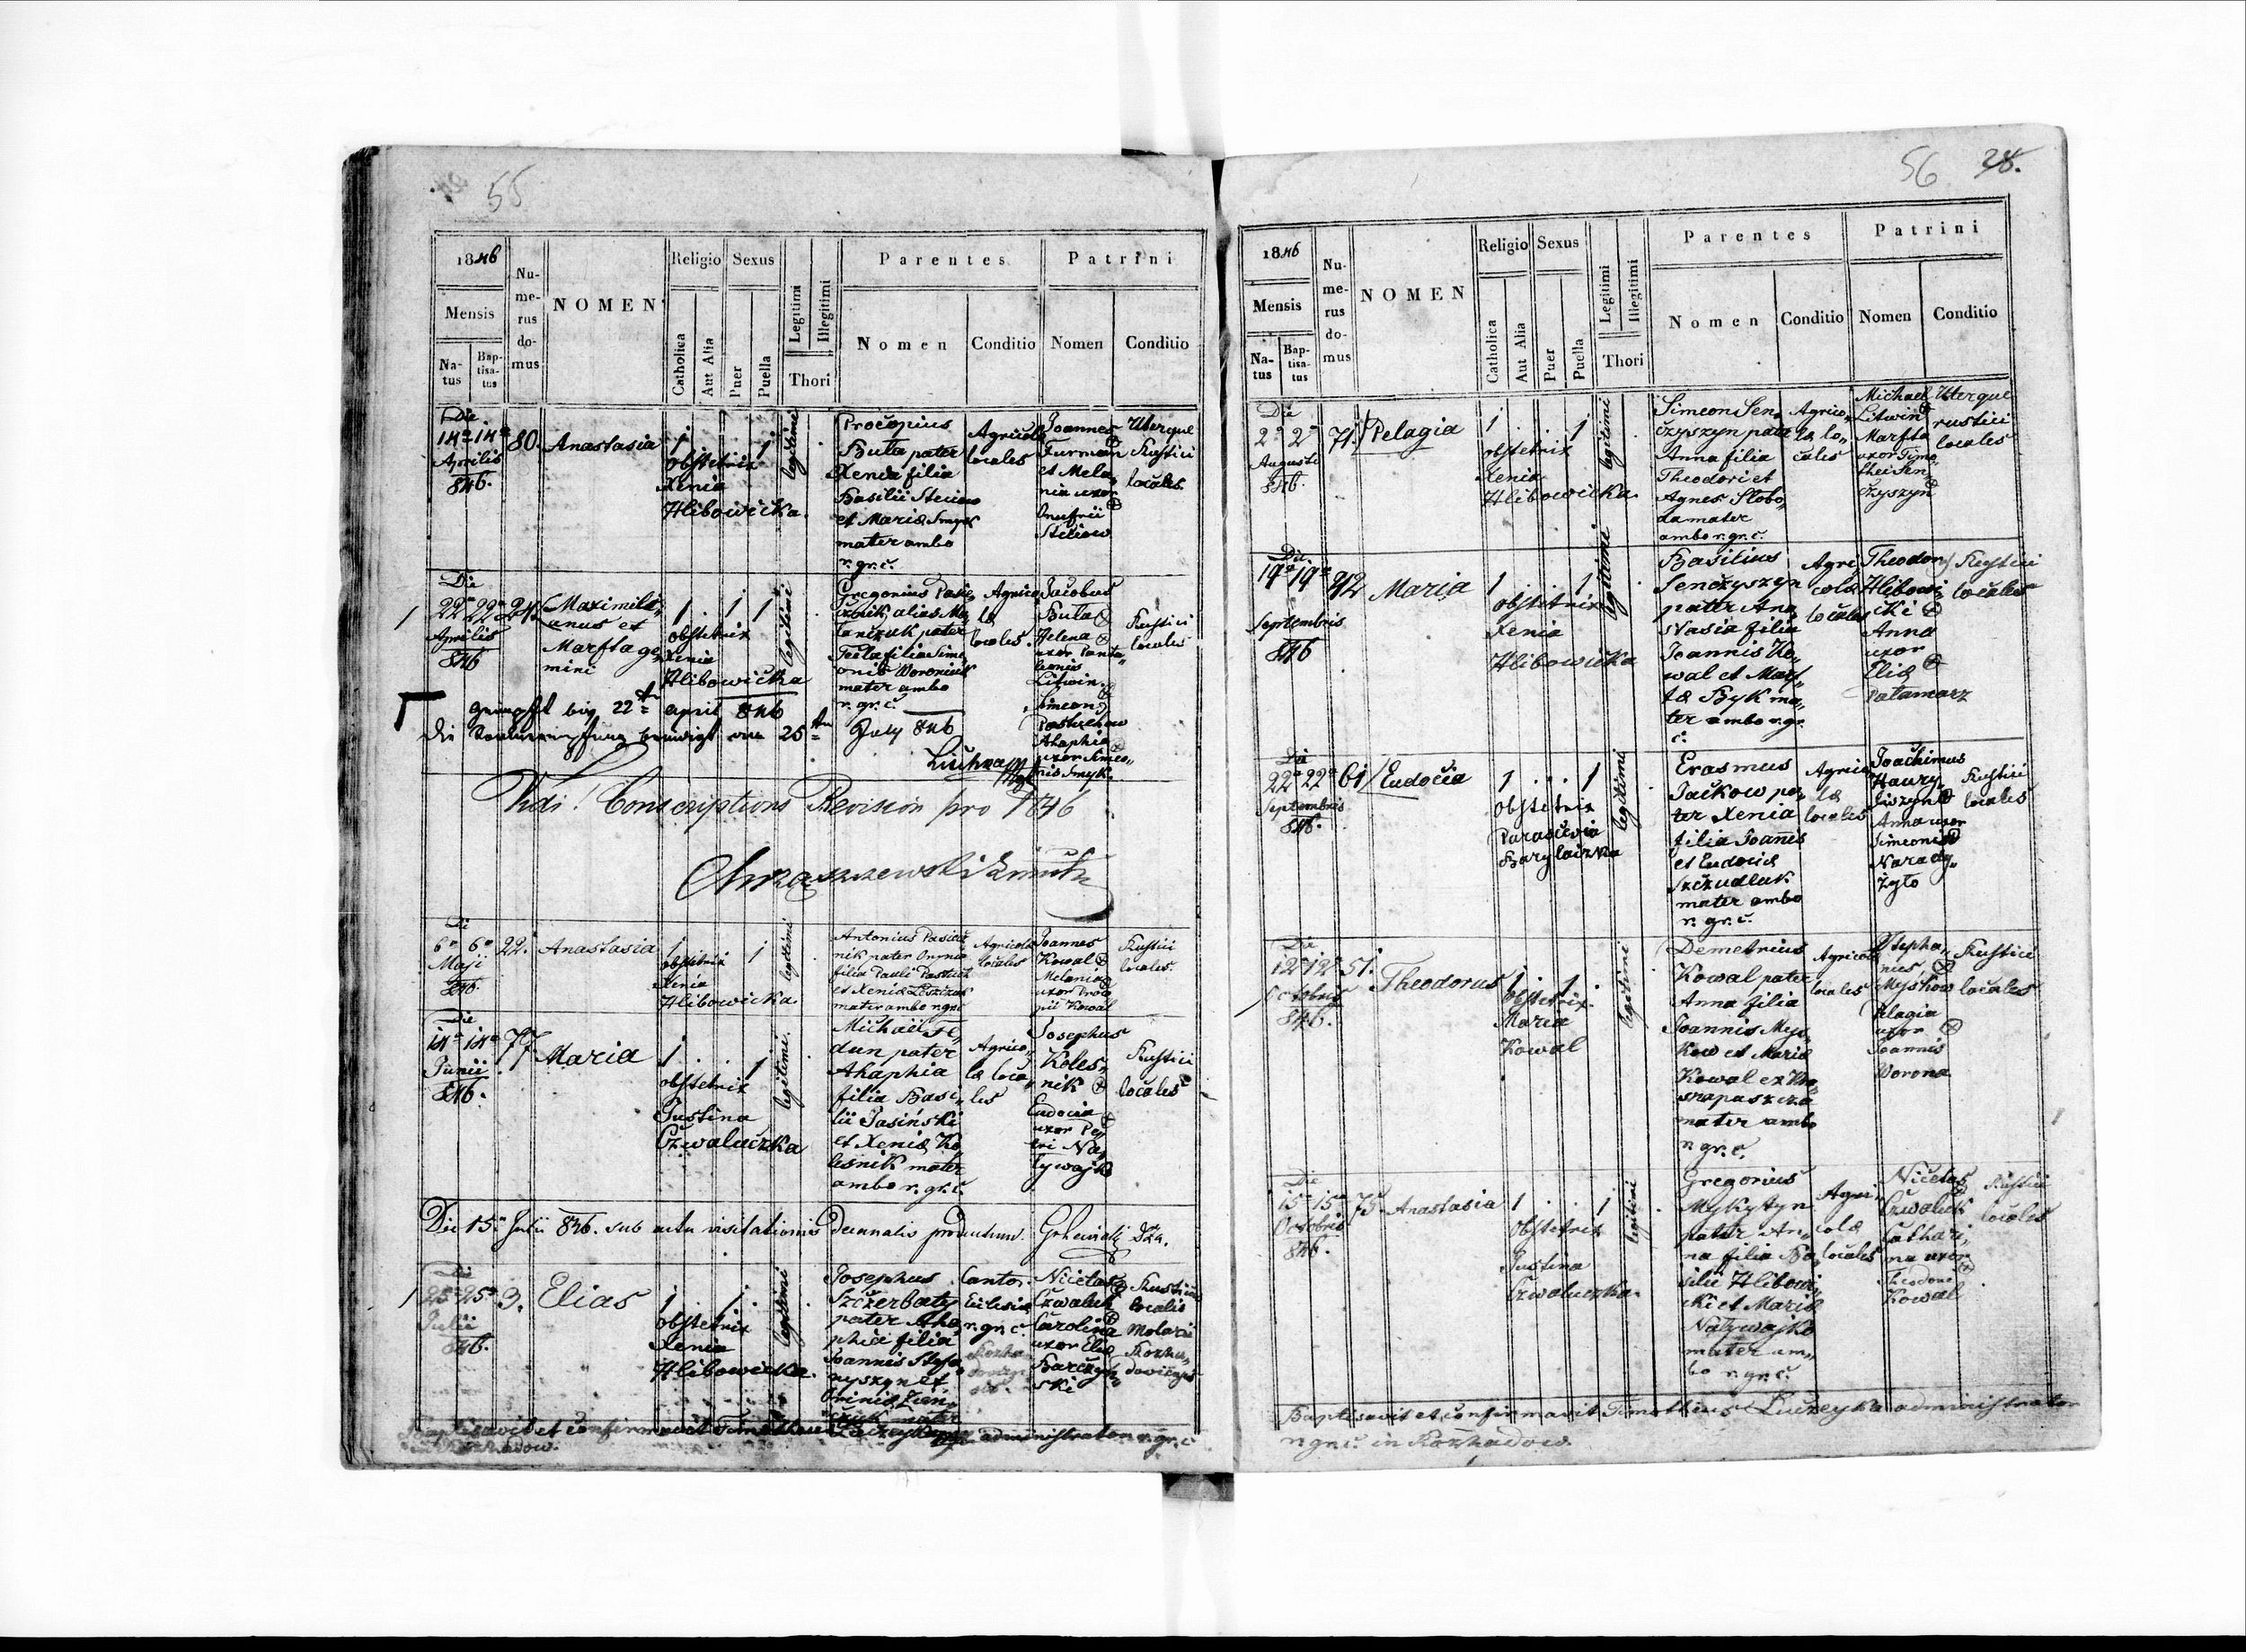 55
1846
Mensis
Na-
tus
Bap-
tisa-
tus
Nu-
me-
rus
do-
mus
NOMEN
Religio
Catholica
Aut Alia
Sexus
Puer
Puella
Legitimi
Illegitimi
Thori
Parentes
Nomen
Conditio
Patrini
Nomen
Conditio
Die
14a 14a
Aprilis
846.
80.
Anastasia
1 . . 1
obstetrix
Xenia
Hlibowicka.
legitimi
Procopius
Buta pater
Xenia filia
Basilii
et Maria
mater ambo
r. gr. c.
Agricola
locales
Joannes
Furman
et Mela„
nia uxor
Onufrii
Uterque
Rustici
locales.
Die
22a 22a
Aprilis
846
24
Maximili„
anus et
Marfta ge„
mini
1 . 1 1
obstetrix
Xenia
Hlibowicka
legitimi
Gregorius
alias
pater
filia Sime„
onis
mater ambo
r. gr. c.
Agrico„
lae
locales.
Jacobus
Buta
Helena
uxor Panta„
leonis
Litwin.
Simeon
Ahaphia
uxor Simeo„
nis Smyk.
Rustici
locales
22
april 846
25
July 846
Vidi! Conscriptions Revision pro 1846
Die
6a 6a
Maji
846.
22.
Anastasia
1 . . 1
obstetrix
Xenia
Hlibowicka.
legitimi
Antonius
nik pater
filia Pauli
et Xenia
mater ambo r gr c
Agricolae
locales
Joannes
Kowal
Melania
uxor Proco
pii Kowal
Rustici
locales.
Die
14a 14a
Junii
846.
77.
Maria
1 . . 1
obstetrix
Justina
Czwaluczka
legitimi.
Michaël
dun pater
Ahaphia
filia Basi„
lii Jasiński
et Xenia Ko„
lesnik mater
ambo r. gr. c.
Agrico„
lae loca„
les
Josephus
Koles„
nik
Eudocia
uxor Pe„
tri Na„
lywajko
Rustici
locales
Die 15a Julii 846. sub actu visitationis Decanalis productum.
Die
25a 25a
Julii
846.
3.
Elias
1 . 1 .
obstetrix
Xenia
Hlibowicka.
legitimi
Josephus
Szczerbaty
pater Aha„
phia filia
Joannis Stefa„
nyszyn et
mater
Cantor
Eclesiae
r. gr. c.
Nicetas
Czwaluk
Carolina
uxor Eliae
Barczyń„
ski
Rusticus
localis
Molarii
Baptisavit et confirmavit Timotheus administrator r. gr. c.
56 28.
1846
Mensis
Na-
tus
Bap-
tisa-
tus
Nu-
me-
rus
do-
mus
NOMEN
Religio
Catholica
Aut Alia
Sexus
Puer
Puella
Legitimi
Illegitimi
Thori
Parentes
Nomen
Conditio
Patrini
Nomen
Conditio
Die
2a 2a
Augusti
846.
71.
Pelagia
1 . . 1
obstetrix
Xenia
Hlibowicka.
legitimi
Simeon Sen„
czyszyn pater
Anna filia
Theodori et
Agnes Slobo„
da mater
ambo r. gr. c.
Agrico„
lae lo„
cales
Michael
Litwin
Marfta
uxor Timo„
thei Sen„
czyszyn
Uterque
rustici
locales
Die
19a 19a
Septembris
846
92
Maria
1 . . 1
obstetrix
Xenia
Hlibowicka
legitimi
Basilius
Senczyszyn
pater Ana„
stasia filia
Joannis Ko„
wal et Marf„
ta Byk ma„
ter ambo r. gr.
c.
Agri„
colae
locales
Theodor
Hlibowi„
cki
Anna
uxor
Eliae
Palamarz
Rustici
locales
Die
22a 22a
Septembris
846.
61
Eudocia
1 . . 1
obstetrix
Parascevia
legitimi
Erasmus
Jackow pa„
ter Xenia
filia Joannis
et Eudocia
Szczudluk
mater ambo
r. gr. c.
Agrico„
lae
locales
Joachimus
Hawry„
liszyn
Anna uxor
Simeonis
Narady„
żyło
Rustici
locales
Die
12a 12a
Octobris
846.
51.
Theodorus
1 . 1 .
obstetrix
Maria
Kowal
legitimi
Demetrius
Kowal pater
Anna filia
Joannis Mys„
kow et Maria
Kowal ex
mater ambo
r. gr. c.
Agricolae
locales
Stepha„
nus
Myskow
Pelagia
uxor
Joannis
Worona
Rustici
locales
Die
15a 15a
Octobris
846.
75.
Anastasia
1 . . 1
obstetrix
Justina
Czwaluczka.
legitimi
Gregorius
Mykytyn
pater An„
na filia Ba„
silii Hlibowi„
cki et Maria
Nalywajko
mater am„
bo r. gr. c.
Agri„
colae
locales
Nicetas
Czwaluk
Cathari„
na uxor
Theodori
Kowal
Rustici
locales
Baptisavit et confirmavit Timotheus Luczeyko administrator
r. gr. c. in